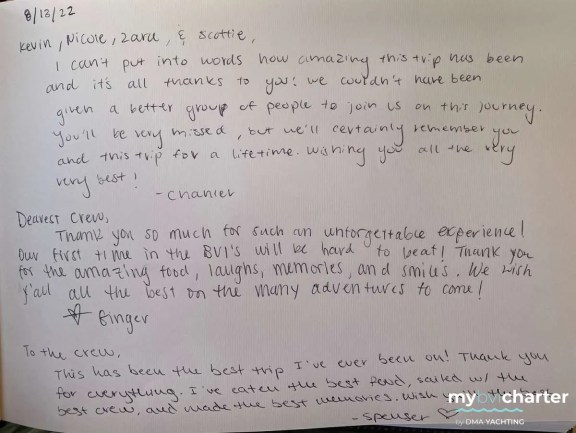 8/13/22
Kevin, Nicole, Zara, & Scottie,
I can't put into words how amazing this trip has been
and it's all thanks to you! We couldn't have been
given a better group of people to join us on this journey.
You'll be very missed, but we'll certainly remember you
and this trip for a lifetime. Wishing you all the very
very best!
- Chanler
Dearest Crew,
Thank you so much for such an unforgettable experience!
Our first time in the BVI's will be hard to beat! Thank you
for the amazing food, laughs, memories, and smiles. We wish
y'all all the best on the many adventures to come!
Ginger
To the crew,
This has been the best trip I've ever been on! Thank you
for everything. I've eaten the best food, sailed w/ the
best crew, and made the best memories. Wish you the best
- Spenser
mybvicharter
by DMA YACHTING